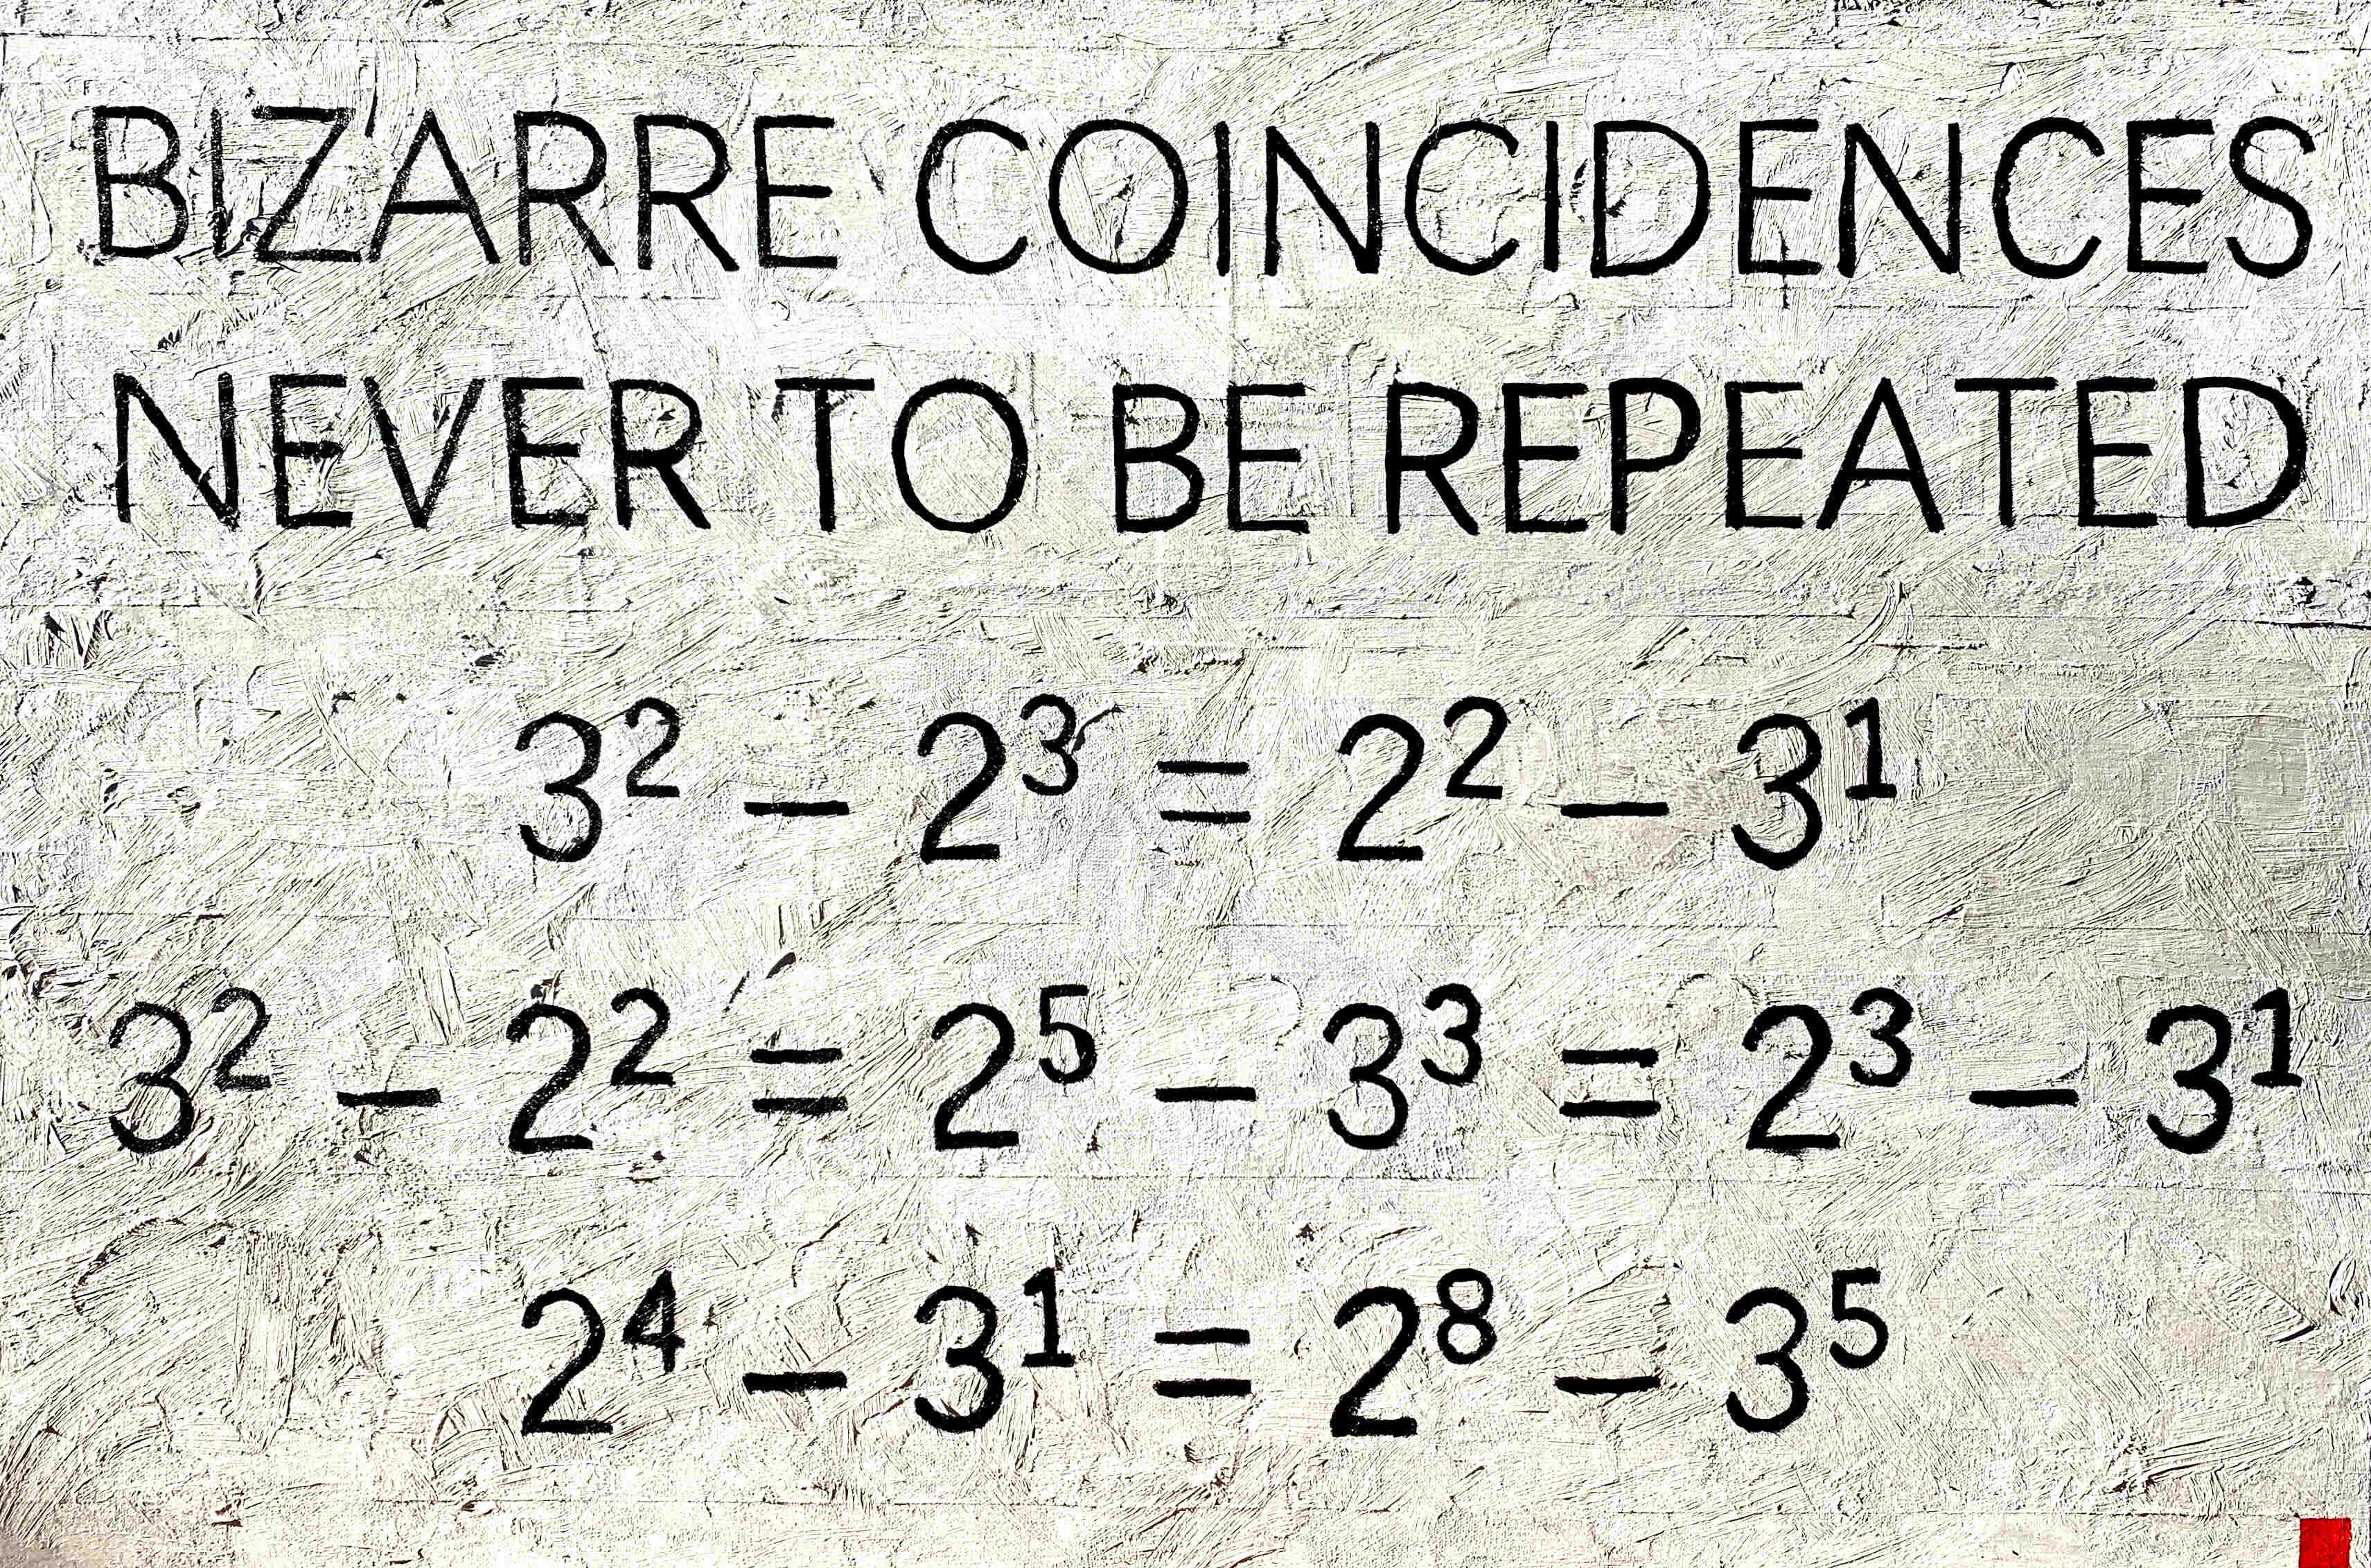 BIZARRE COINCIDENCES
NEVER TO BE REPEATED
3² – 2³ = 2² – 3¹
3² – 2² = 2⁵ – 3³ = 2³ – 3¹
2⁴ – 3¹ = 2⁸ – 3⁵